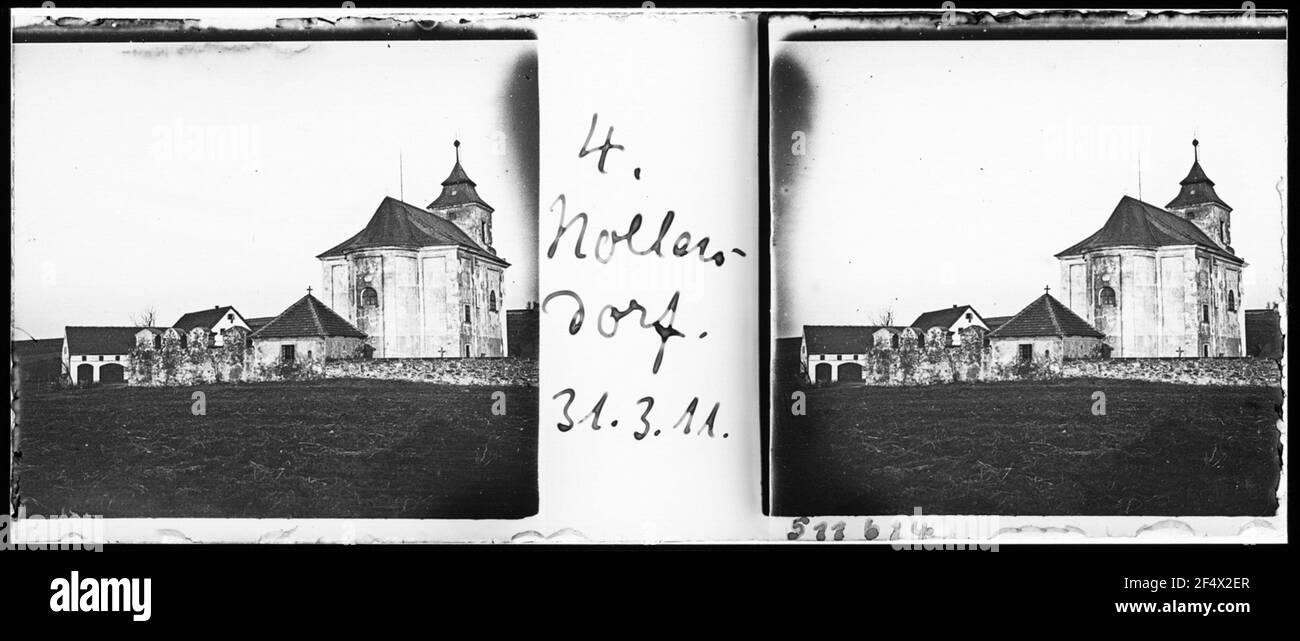 4.
Nollen-
dorf.
31.3.11.
511614
alamy
Image ID: 2F4X2ER
www.alamy.com